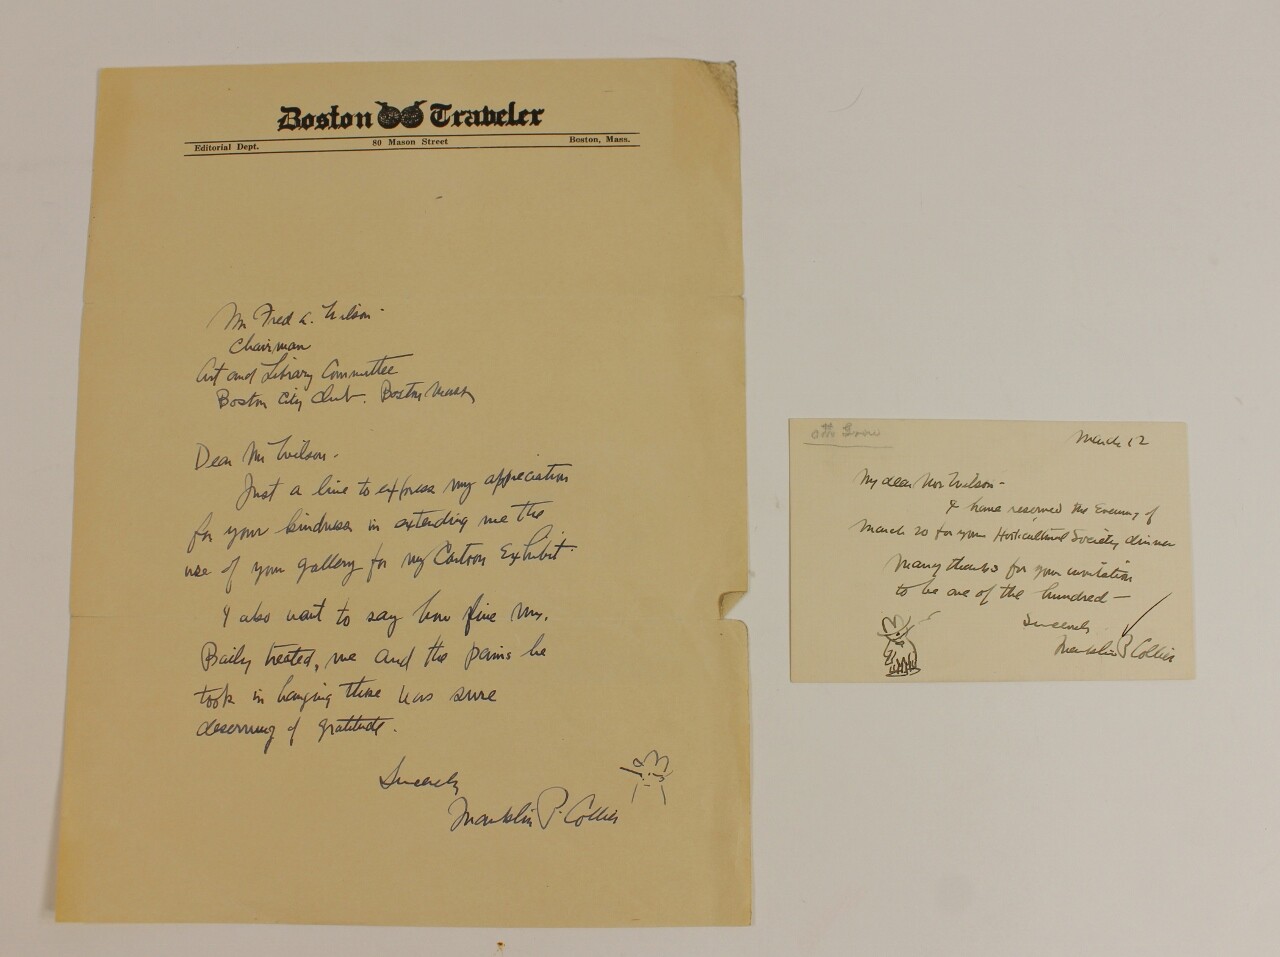 Boston Traveler
Editorial Dept. 80 Mason Street Boston, Mass.
Mr Fred L. Wilson.
Chairman
Art and Library Committee
Boston City Club. Boston Mass
Dear Mr Wilson.
Just a line to express my appreciation
for your kindness in extending me the
use of your gallery for my Cartoon Exhibit.
I also want to say how fine Mr.
Baily treated me and the pains he
took in hanging these was sure
deserving of gratitude.
Sincerely
Franklin P. Collier
March 12
My dear Mr Wilson-
I have reserved the Evening of
March 20 for your Horticultural Society dinner
Many thanks for your invitation
to be one of the hundred—
Sincerely
Franklin P. Collier